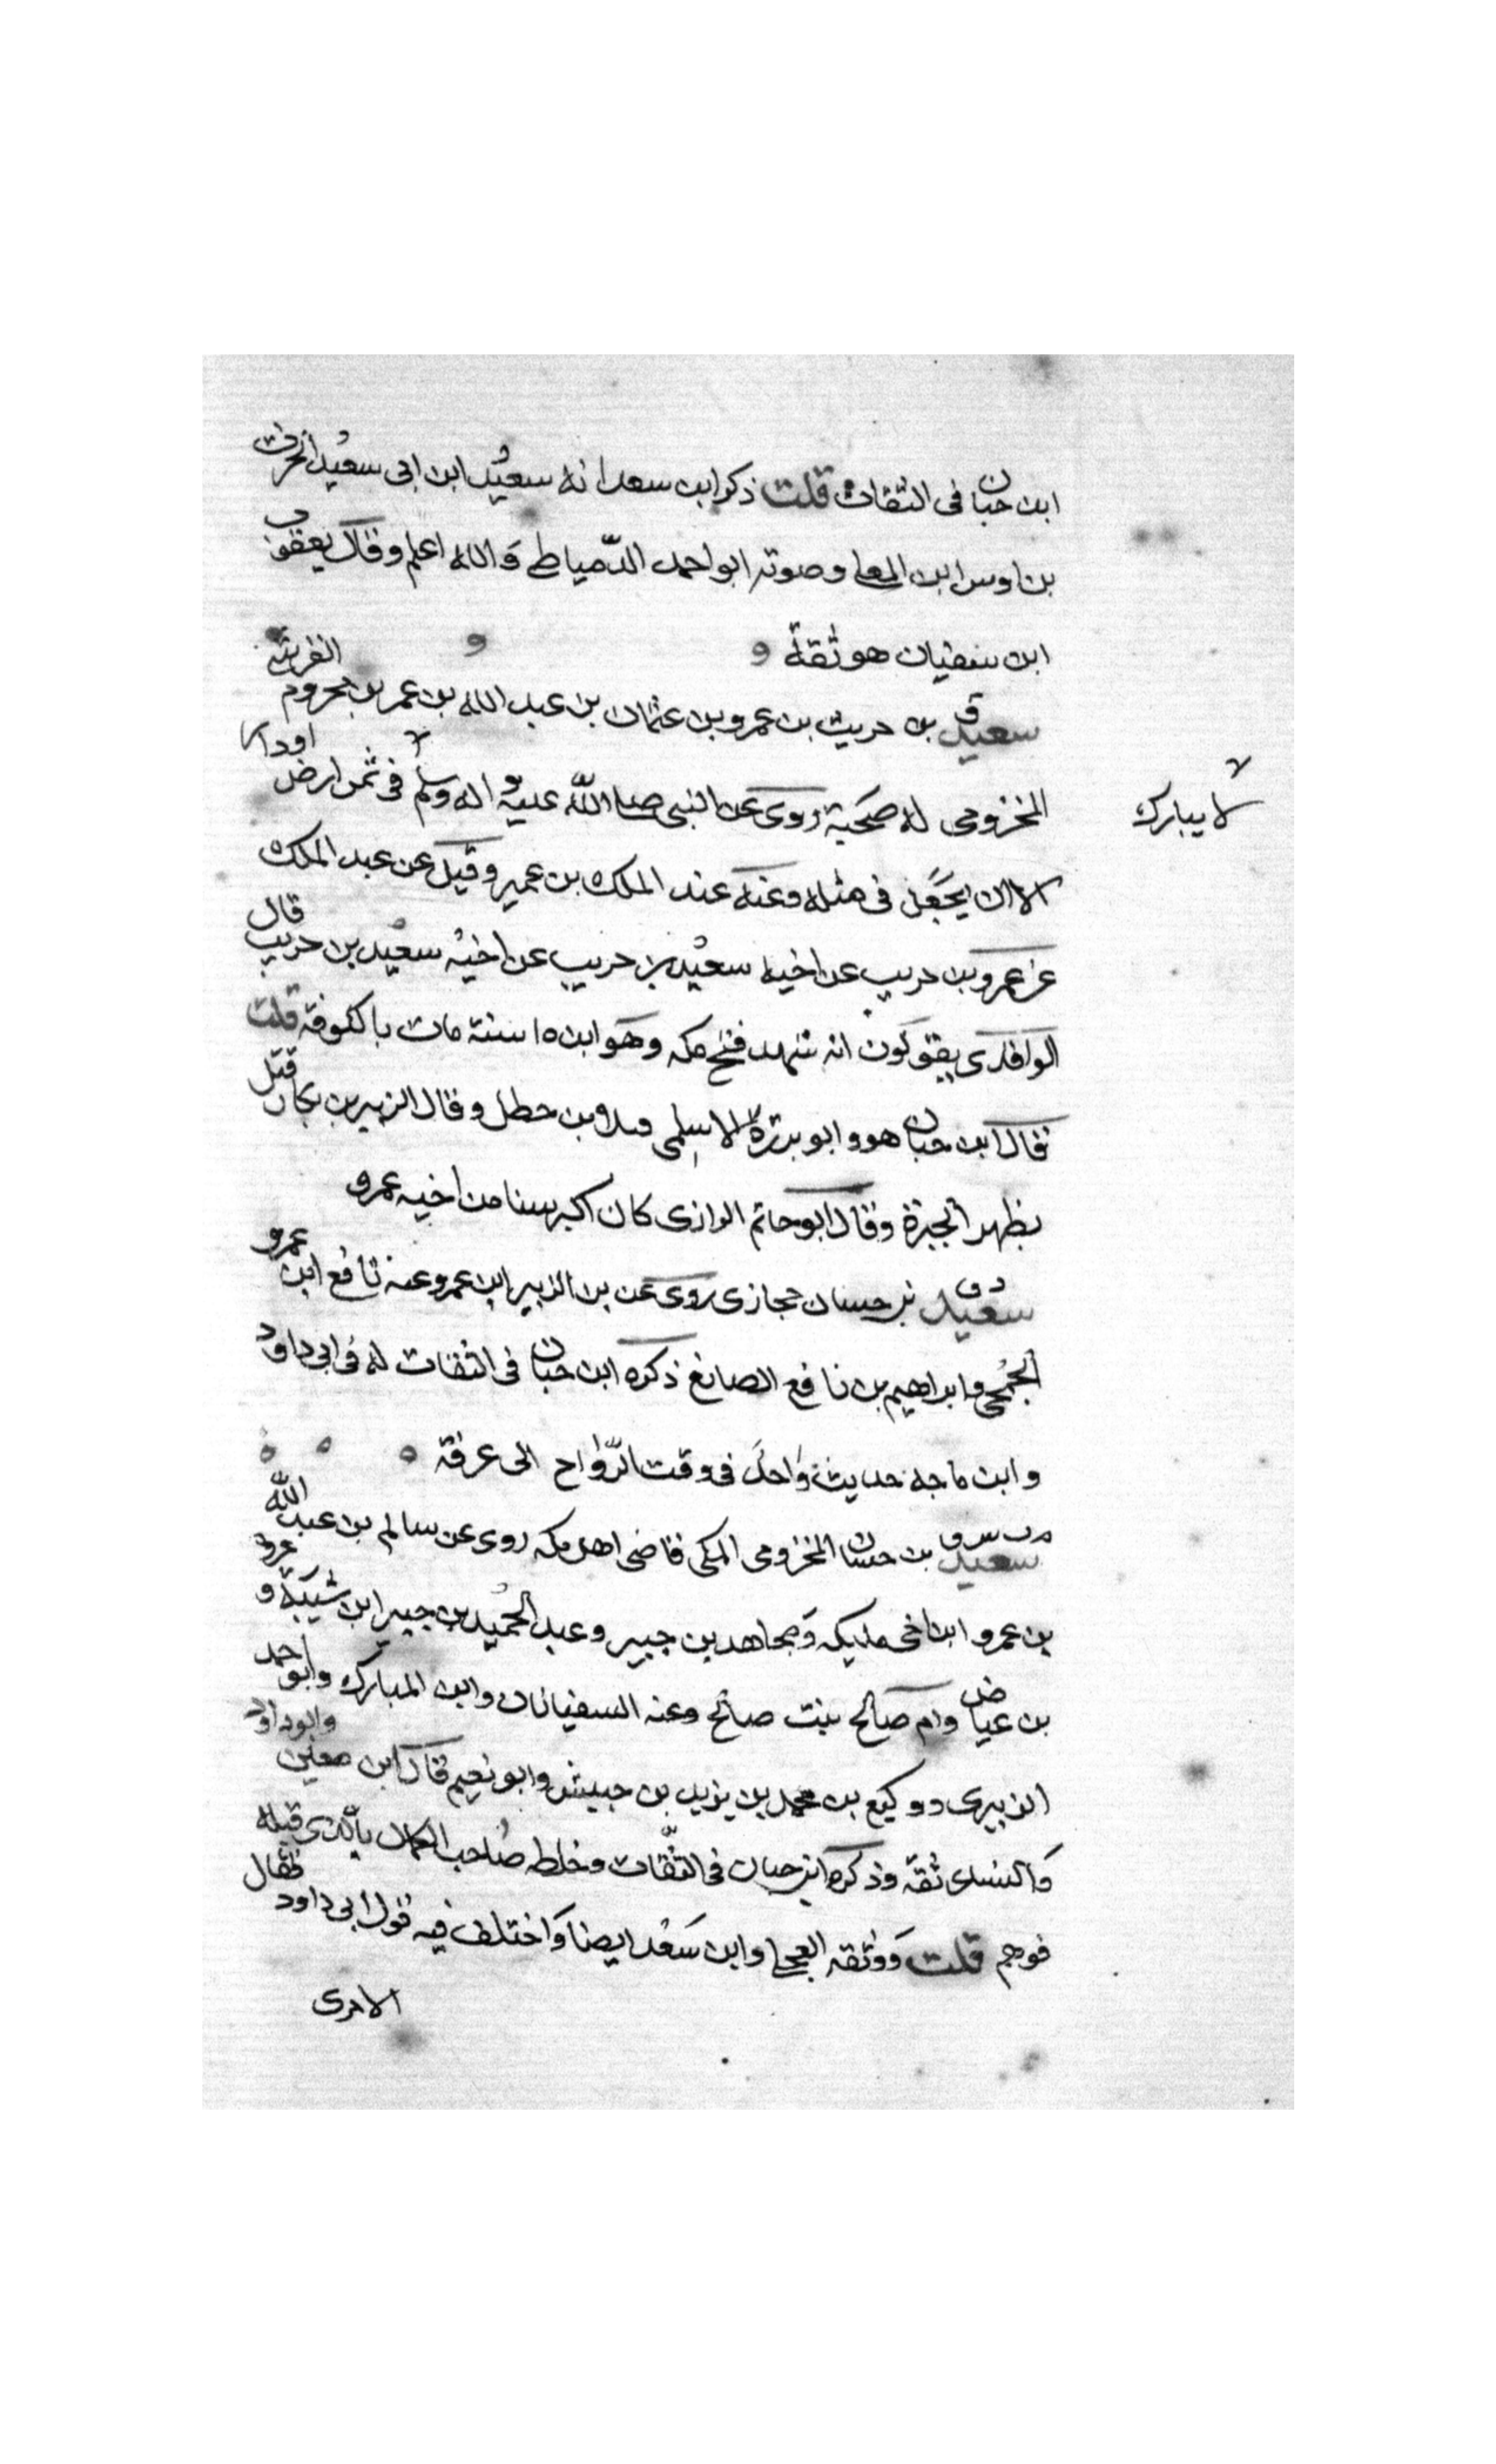 ابن حبان فى الثقات قلت ذكر ابن سعد انه سعيد ابن ابى سعيد الحرث
بن اوس ابن المعلى وصوته ابو احمد الدمياطى والله اعلم وقال يعقوب
ابن سفيان هو ثقة
سعيد ق بن حريث بن عمرو بن عثمان بن عبد الله بن عمر بن مخزوم القرشى
المخزومى له صحبة روى عن النبى صلى الله عليه واله وسلم فى ثمن ارض او دار
لا يبارك
الا ان يجعل فى مثله وعنه عند الملك بن عمير وقيل عن عبد الملك
عن عمرو بن حريث عن اخيه سعيد بن حريب عن اخيه سعيد بن حريب قال
الواقدى يقولون انه شهد فتح مكه وهو ابن ١٥ سنة مات بالكوفة قلت
قال ابن حبان هو وابو برزة الاسلمى بن خطل وقال الزبير بن بكار قتل
بظهر الجيزة وقال ابو حاتم الرازى كان اكبر سنا من اخيه عمرو
سعيد د ق بن حسان حجازى روى عن بن الزبير ابن عمرو عنه نافع ابن عمرو
الجمحى وابراهيم بن نافع الصائغ ذكره ابن حبان فى الثقات له فى ابى داود
وابن ماجه حديث واحد فى وقت الرواح الى عرفة
سعيد م ت س ق بن حسان المخزومى المكى قاضى اهل مكه روى عن سالم بن عبد الله
بن عمرو ابن اخى مليكه ومجاهد بن جبير وعبد الحميد بن جبير ابن شيبة وعروة
بن عياض وام صالح بنت صالح وعنه السفيانان وابن المبارك وابو احمد
الزبيرى ووكيع بن محمد بن يزيد بن حبيش وابو نعيم قال ابن معين وابو داود
والنساى ثقة وذكره ابن حبان فى الثقات وخلطه صاحب الكمال بالذى قبله
فوهم قلت ووثقه العجلى وابن سعد ايضا واختلف فيه قول ابى داود فقال
الاجرى